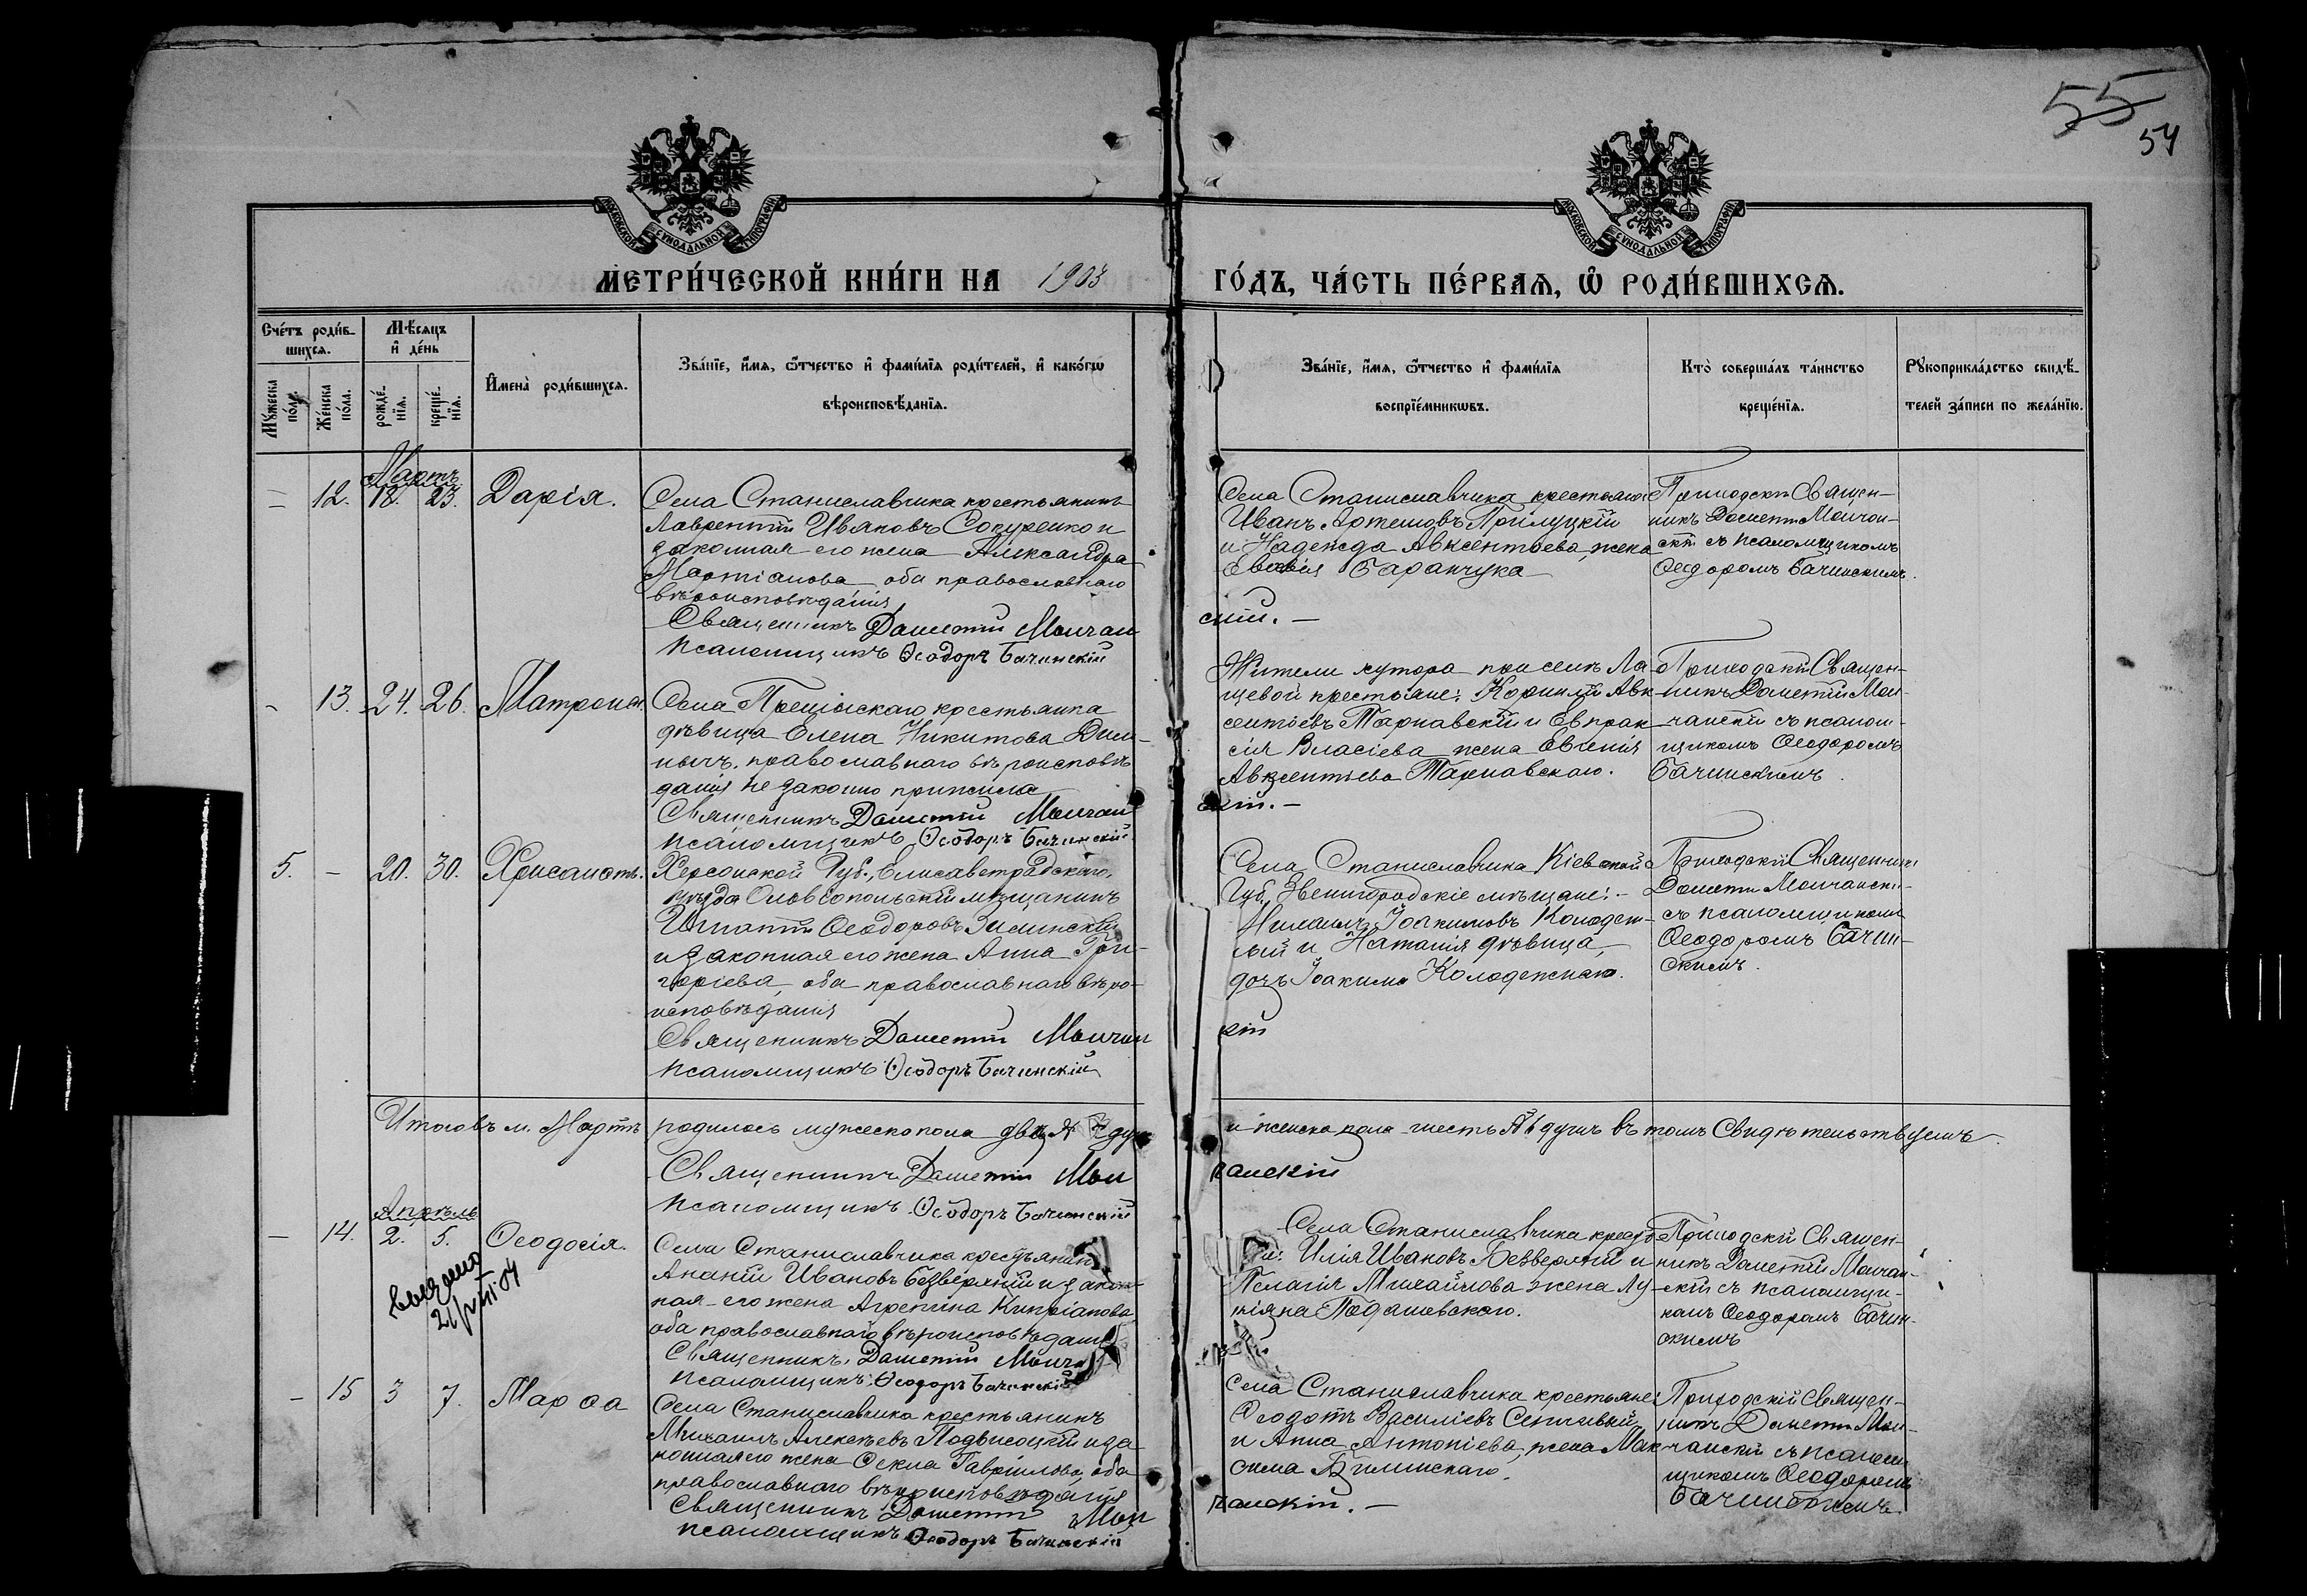 55
54
МОСКОВСКОЙ СѴНОДАЛЬНОЙ ТИПОГРАФІИ
МОСКОВСКОЙ СѴНОДАЛЬНОЙ ТИПОГРАФІИ
МЕТРИ́ЧЕСКОЙ КНИ́ГИ НА 1903 ГО́ДЪ, ЧА́СТЬ ПЕ́РВАѦ, Ѽ РОДИ́ВШИХСѦ.
Сче́тъ роди́в-
шихсѧ.
Мꙋ́жеска по́лꙋ.
Же́нска по́ла.
Мѣ́сѧцъ
и҆ де́нь
рожде́-
нїѧ.
креще́-
нїѧ.
И҆мена̀ роди́вшихсѧ.
Зва́нїе, и҆́мѧ, ѻ҆́тчество и҆ фами́лїѧ роди́телей, и҆ како́гѡ
вѣроисповѣ́данїѧ.
Зва́нїе, и҆́мѧ, ѻ҆́тчество и҆ фами́лїѧ
воспрїе́мникѡвъ.
Кто̀ соверша́лъ та́инство
креще́нїѧ.
Рꙋкоприкла́дство свидѣ́-
телей за́писи по жела́нїю.
Мартъ
– 12. 18. 23. Дарія.
Села Станиславчика крестьянинъ
Лаврентій Ивановъ Сокуренко и
законная его жена Александра
Мартіанова оба православнаго
вѣроисповѣданія
Священникъ Дометій Молчан
Псаломщикъ Ѳеодоръ Бачинскій
Села Станиславчика крестьяне:
Иванъ Артемовъ Прилуцкій
и Надежда Авксентьева жена
Баранчука
скій. –
Приходскій Священ-
никъ Дометій Молчан-
скій съ псаломщикомъ
Ѳеодоромъ Бачинскимъ.
– 13. 24. 26. Матрона.
Села крестьянка
дѣвица Елена Никитова
православнаго вѣроисповѣ
данія незаконно прижила
Священникъ Дометій Молчан
Псаломщикъ Ѳеодоръ Бачинскій
Жители хутора при селѣ Ла-
щевой крестьяне: Корнилій Авк-
сентіевъ Тарнавскій и Евпрак
сія Власіева жена Евгенія
Авксентіева Тарнавскаго.
скій. –
Приходскій Священ-
никъ Дометій Мол-
чанскій съ псалом-
щикомъ Ѳеодоромъ
Бачинскимъ.
5. – 20. 30. Хрисанѳъ.
Херсонской Губ., Елисаветградскаго
уѣзда Ольвіопольскій мѣщанинъ
Игнатій Ѳеодоровъ Зилинскій
и законная его жена Анна Гри-
горіева, оба православнаго вѣро-
исповѣданія
Священникъ Дометій Молчан
Псаломщикъ Ѳеодоръ Бачинскій
Села Станиславчика Кіевской
Губ. Звенигородскіе мѣщане: –
Михаилъ Іоакимовъ Колодеж-
ный и Наталія дѣвица,
дочь Іоакима Колодежнаго.
скій
Приходскій Священникъ
Дометій Молчанскій
съ псаломщикомъ
Ѳеодоромъ Бачин-
скимъ.
Итого въ м. Мартѣ родилось мужеска пола два
и женска пола шесть душъ въ томъ Свидѣтельствуемъ.
Священникъ Дометій Мол
чанскій
Псаломщикъ Ѳеодоръ Бачинскій
Апрѣль
– 14. 2. 5. Ѳеодосія.
выдана
21/VIII 04
Села Станиславчика крестьянин
Ананій Ивановъ Безверхній и закон
ная его жена Агрепина Кипріанова
оба православнаго вѣроисповѣданія
Священникъ Дометій Молча
Псаломщикъ Ѳеодоръ Бачинскій
Села Станиславчика кресть
не: Илія Ивановъ Безверхній и
Пелагія Михайлова жена Лу-
кіяна Подашевскаго.
Приходскій Священ-
никъ Дометій Молчан-
скій съ псаломщи-
комъ Ѳеодоромъ Бачин-
скимъ
– 15 3 7. Марѳа
Села Станиславчика крестьянинъ
Михаилъ Алексѣевъ Подвысоцкій и за
конная его жена Ѳекла Гавріилова, оба
православнаго вѣроисповѣданія
Священникъ Дометій Мол
Псаломщикъ Ѳеодоръ Бачинскій
Села Станиславчика крестьяне:
Ѳеодотъ Василіевъ
и Анна Антоніева, жена Мак-
сима Билинскаго.
чанскій. –
Приходскій Священ-
никъ Дометій Мол-
чанскій съ псалом
щикомъ Ѳеодоромъ
Бачинскимъ.